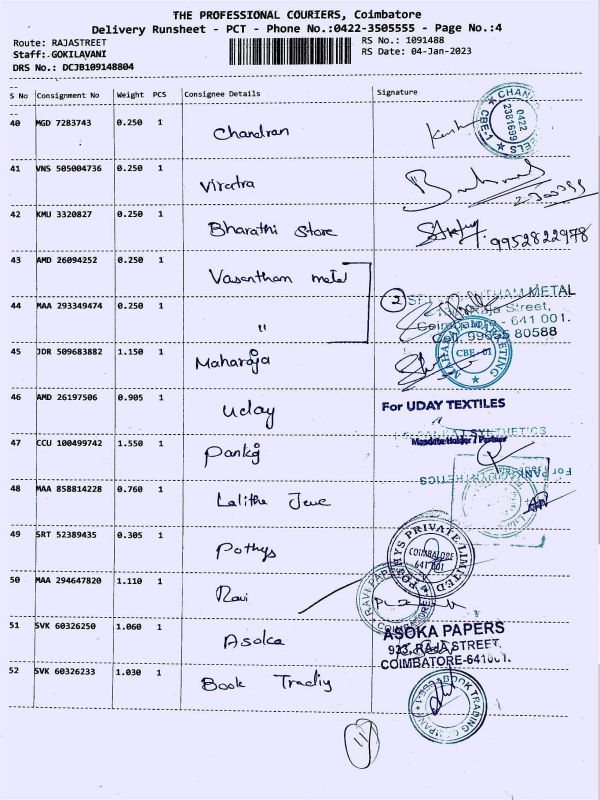 THE PROFESSIONAL COURIERS, Coimbatore
Delivery Runsheet - PCT - Phone No.:0422-3505555 - Page No.:4
Route: RAJASTREET
RS No.: 1091488
Staff:.GOKILAVANI
RS Date: 04-Jan-2023
DRS No.: DCJB109148804
S No Consignment No Weight PCS Consignee Details Signature
40 MGD 7283743 0.250 1 Chandran
CHAN
0422
2381699
ELS
CBE-1
41 VNS 505004736 0.250 1 Viratra
42 KMU 3320827 0.250 1 Bharathi Store
9952822978
43 AMD 26094252 0.250 1 Vasantham metal
2
44 MAA 293349474 0.250 1 "
METAL
Raja Street,
641 001.
80588
45 JDR 509683882 1.150 1 Maharaja
MARKETING
CBE - 01
46 AMD 26197506 0.905 1 Uday
For UDAY TEXTILES
47 CCU 100499742 1.550 1 Pankj
SYNTHETICS
48 MAA 858814228 0.760 1 Lalitha
49 SRT 52389435 0.305 1 Pothys
POTHYS PRIVATE LIMITED
COIMBATORE
641 001
50 MAA 294647820 1.110 1 Ravi
RAVI PAP
51 SVK 60326250 1.060 1 Asoka
ASOKA PAPERS
923, RAJA STREET,
COIMBATORE-641001.
52 SVK 60326233 1.030 1 Book Tradiy
BOOK TRADING COMPANY
11